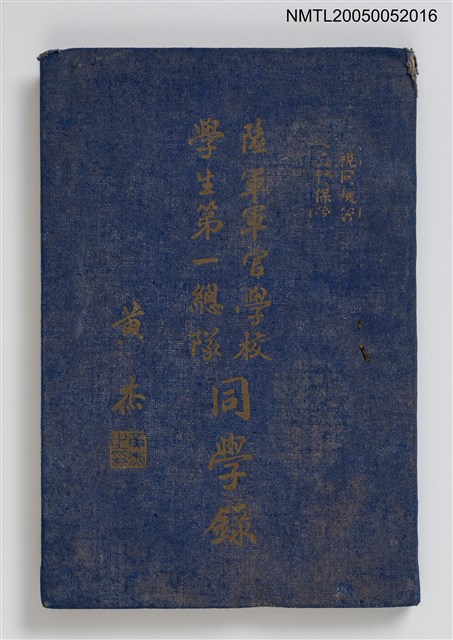 NMTL20050052016
視同機密
陸軍軍官學校
學生第一總隊
同學錄
黃杰